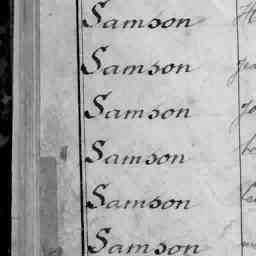 Samson
Samson
Samson
Samson
Samson
Samson